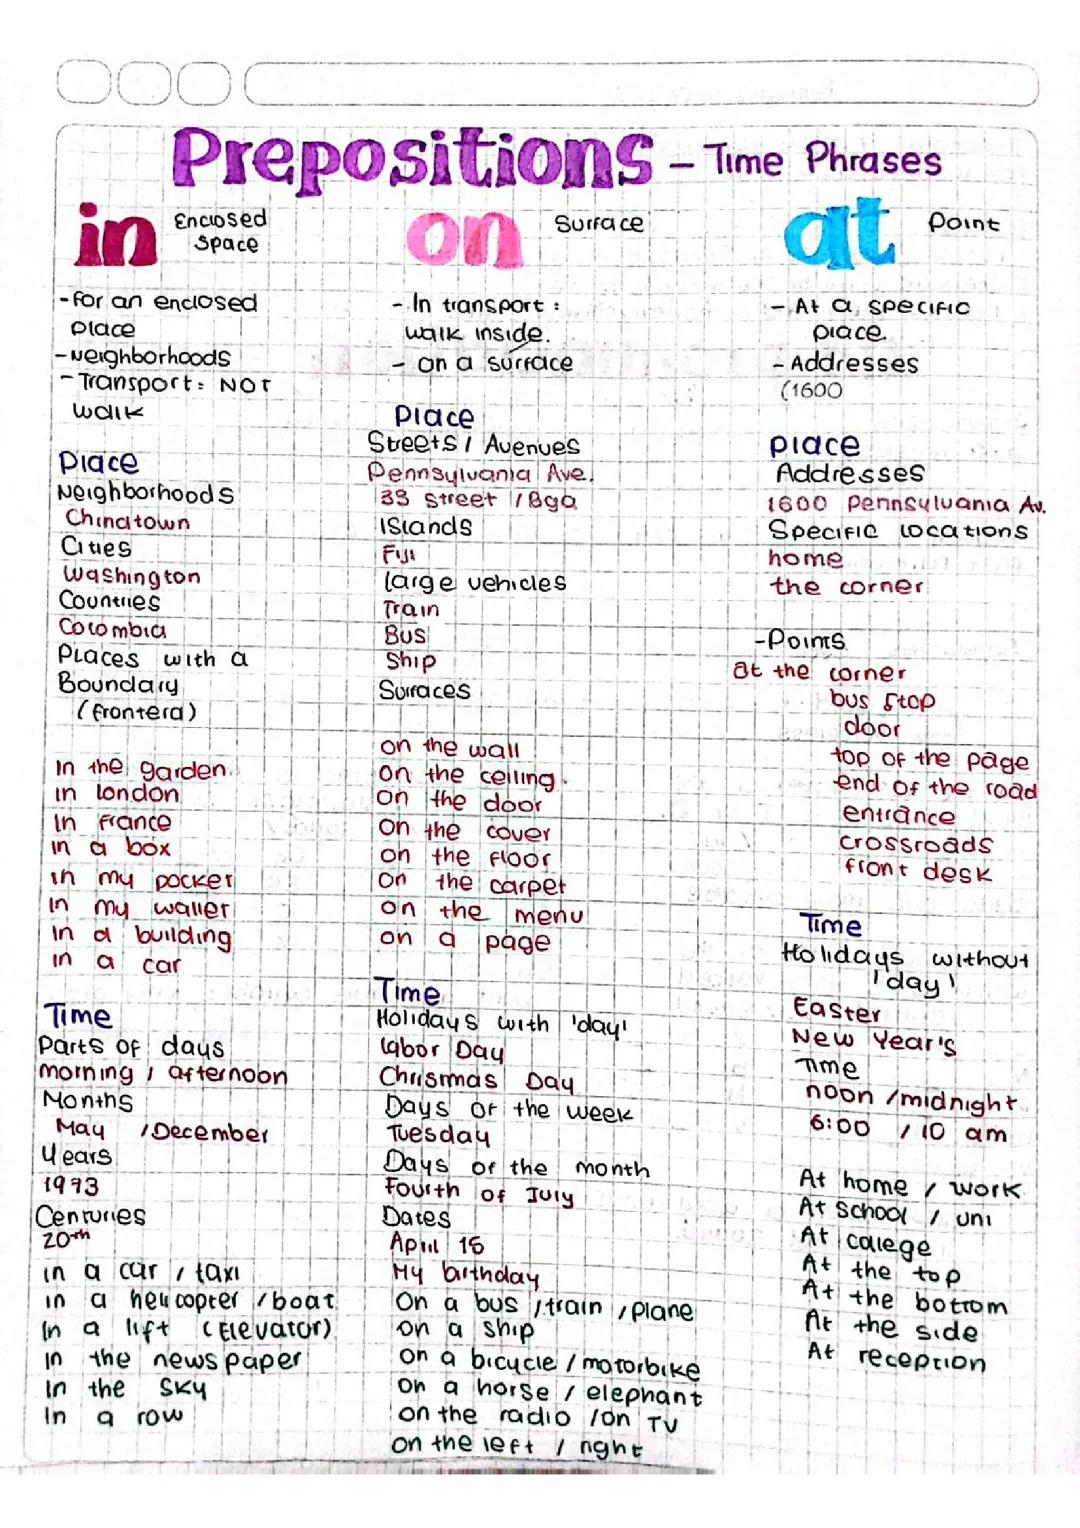 Prepositions - Time Phrases
in Enclosed
Space
-for an enclosed
place
-Neighborhoods
-Transport: NOT
walk
Place
Neighborhoods
Chinatown
Cities
Washington
Countries
Colombia
Places with a
Boundary
(frontera)
In the garden
in London
In France
in a box
in my pocket
In my wallet
In a building
in a car
Time
Parts of days
morning / afternoon
Months
May / December
Years
1993
Centuries
20th
in a car / taxi
in a helicopter / boat
In a lift (Elevator)
In the newspaper
In the sky
In a row
on Surface
- In transport:
walk inside.
- on a surface
Place
Streets / Avenues
Pennsylvania Ave.
33 street / Bga
Islands
Fiji
large vehicles
Train
Bus
Ship
Surraces
on the wall
on the ceiling.
on the door
on the cover
on the floor
on the carpet
on the menu
on a page
Time
Holidays with 'day'
Labor Day
Chrismas Day
Days of the week
Tuesday
Days of the month
Fourth of July
Dates
April 15
My birthday
On a bus / train / plane
on a ship
on a bicycle / motorbike
On a horse / elephant
on the radio / on TV
on the left / right
at Point
- At a specific
place.
- Addresses
(1600
place
Addresses
1600 Pennsylvania Av.
Specific locations
home
the corner
-Points
at the corner
bus stop
door
top of the page
end of the road
entrance
crossroads
front desk
Time
Holidays without
'day'
Easter
New Year's
Time
noon / midnight
6:00 / 10 am
At home / work
At school / uni
At college
At the top
At the bottom
At the side
At reception